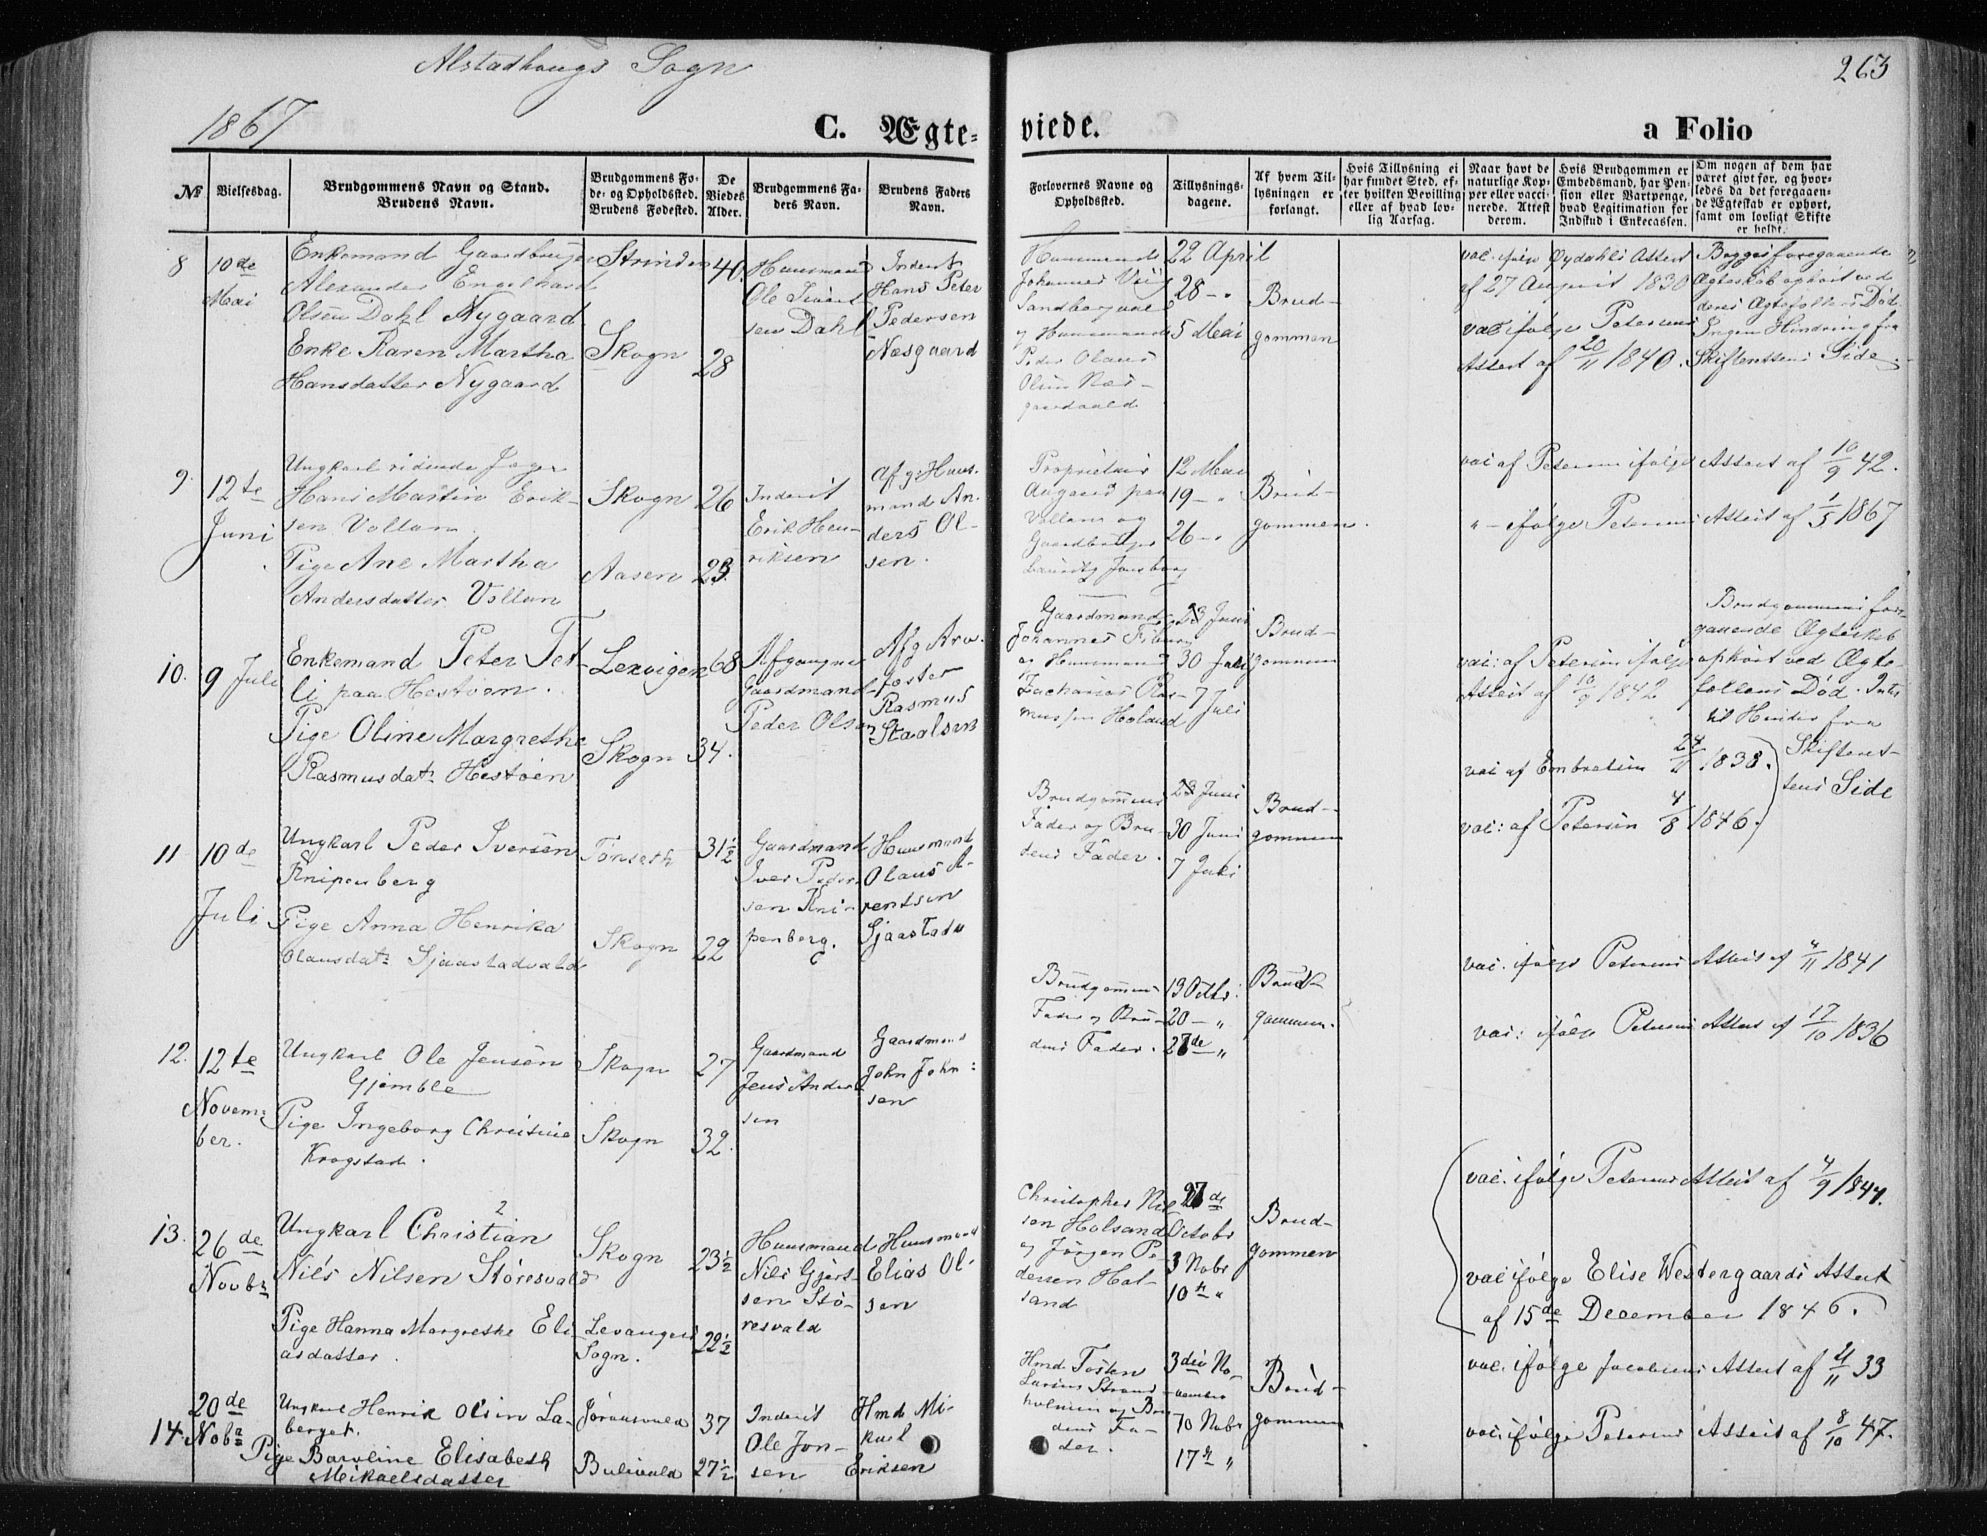 Alstadhougs Sogn
263
1867
C. Ægte-
viede.
a Folio
№
Vielsesdag.
Brudgommens Navn og Stand.
Brudens Navn.
Brudgommens Fø-
de- og Opholdssted.
Brudens Fødested.
De
Viedes
Alder.
Brudgommens Fa-
ders Navn.
Brudens Faders
Navn.
Forlovernes Navne og
Opholdssted.
Tillysnings-
dagene.
Af hvem Til-
lysningen er
forlangt.
Hvis Tillysning ei
har fundet Sted, ef-
ter hvilken Bevilling
eller af hvad lov-
lig Aarsag.
Naar havt de
naturlige Kop-
per eller vacci-
nerede. Attest
derom.
Hvis Brudgommen er
Embedsmand, har Pen-
sion eller Vartpenge,
hvad Legitimation for
Indskud i Enkecassen.
Om nogen af dem har
været gift før, og hvor-
ledes da det foregaaen-
de Ægteskab er ophørt,
samt om lovligt Skifte
er holdt.
8
10de
Mai
Enkemand Gaardbruger
Alexander Engelhard
Olsen Dahl Nygaard
Enke Karen Martha
Hansdatter Nygaard
Strinden
Skogn
40
28
Huusmand
Ole
sen Dahl
Inderst
Hans Peter
Pedersen
Næsgaard
Huusmand
Johannes
og Huusmand
Peder Olaus
Olsen Næs-
gaardvald
22 April
28 - "
5 Mai
Brud-
gommen
vac. ifølge Øydahls Attest
af 27 August 1830
vac ifølge Petersens
Attest af 20/11 1840.
Begges foregaaende
Ægteskab ophørt ved
deres Ægtefolks Død.
Ingen Hindring fra
Skifterettens Side.
9.
12te
Juni
Ungkarl ridende Jæger
Hans Martin Erik-
sen Vollan
Pige Ane Martha
Andersdatter Vollan
Skogn
Aasen
26
23
Inderst
Erik Hen-
riksen
Afg. Huus-
mand An-
ders Ol-
sen.
Proprietair
Aagaard paa
Vollan og
Gaardbruger
12 Mai
19 - "
26 - "
Brud-
gommen.
vac af Petersen ifølge Attest af 10/9 42.
" - ifølge Petersens Attest af 1/5 1867
10.
9 Juli
Enkemand Peter Tet-
li paa Hestøen.
Pige Oline Margrethe
Rasmusdatr Hestøen
Lexvigen
Skogn
68
34.
Afgangne
Gaardmand
Peder Olsen
Afg Arv-
fæster
Rasmus
Staalsen
Gaardmand
Johannes
og Huusmand
Zacharias Ras-
mussen Holand
23 Juni
30 Juli
7 Juli
Brud-
gommen
vac: af Petersen ifølge
Attest af 10/9 1842
vac af Embretsen 24/11 1838.
Brudgommens fore-
gaaende Ægteskab
ophørt ved Ægte-
fællens Død. Intet
til Hinder fra
Skifteret-
tens Side
11
10de
Juli
Ungkarl Peder Iversen
Knipenberg
Pige Anna Henrika
Olausdatr Gjaastadvald
Tønseth
Skogn
31½
22
Gaardmand
Iver Peder-
sen Kni-
penberg.
Huusmand
Olaus A-
rentsen
Gjaastadv
Brudgommens
Fader og Bru-
dens Fader.
23 Juni
30 Juni
7 Juli
Brud-
gommen
vac: af Petersen 4/8 1846.
vac. ifølge Petersens Attest af 4/11 1841
12.
12te
Novem-
ber.
Ungkarl Ole Jensen
Gjemble
Pige Ingeborg Christine
Krogstad.
Skogn
Skogn
27
32.
Gaardmand
Jens Ander-
sen
Gaardmand
John John-
sen
Brudgommens
Fader og Bru-
dens Fader.
13 Octbr.
20 - "
27de "
Brud-
gommen.
vac: ifølge Petersens Attest af 17/10 1836
13.
26de
Novbr
Ungkarl Christian
Nils Nilsen Støresvald
Pige Hanna Margrethe Eli-
asdatter.
Skogn
Levangers
Sogn.
23½
22½
Huusmand
Nils Gjert-
sen Stø-
resvald
Huusmand
Elias Ol-
sen
Christopher Nil-
sen Holsand
og Jørgen Pe-
dersen Hol-
sand
27de
Octobr
3 Nobr
10 "
Brud-
gommen
vac. ifølge Petersens Attest af 4/9 1844.
vac ifølge Elise Westergaards Attest
af 15de December 1846.
14
20de
Nobr
Ungkarl Henrik Olsen La-
berget.
Pige Baroline Elisabeth
Mikaelsdatter
37
27½
Inderst
Ole Jon-
sen
Hmd Mi-
kael
Eriksen
Hmd Tosten
Larsen Strand-
holmen og Bru-
dens Fa-
der.
3die No-
vember
10 Nobr
17 "
Brud-
gommen
vac. ifølge Jacobsens Attest af 21/11 33
vac. ifølge Petersens Attest af 8/10 47.